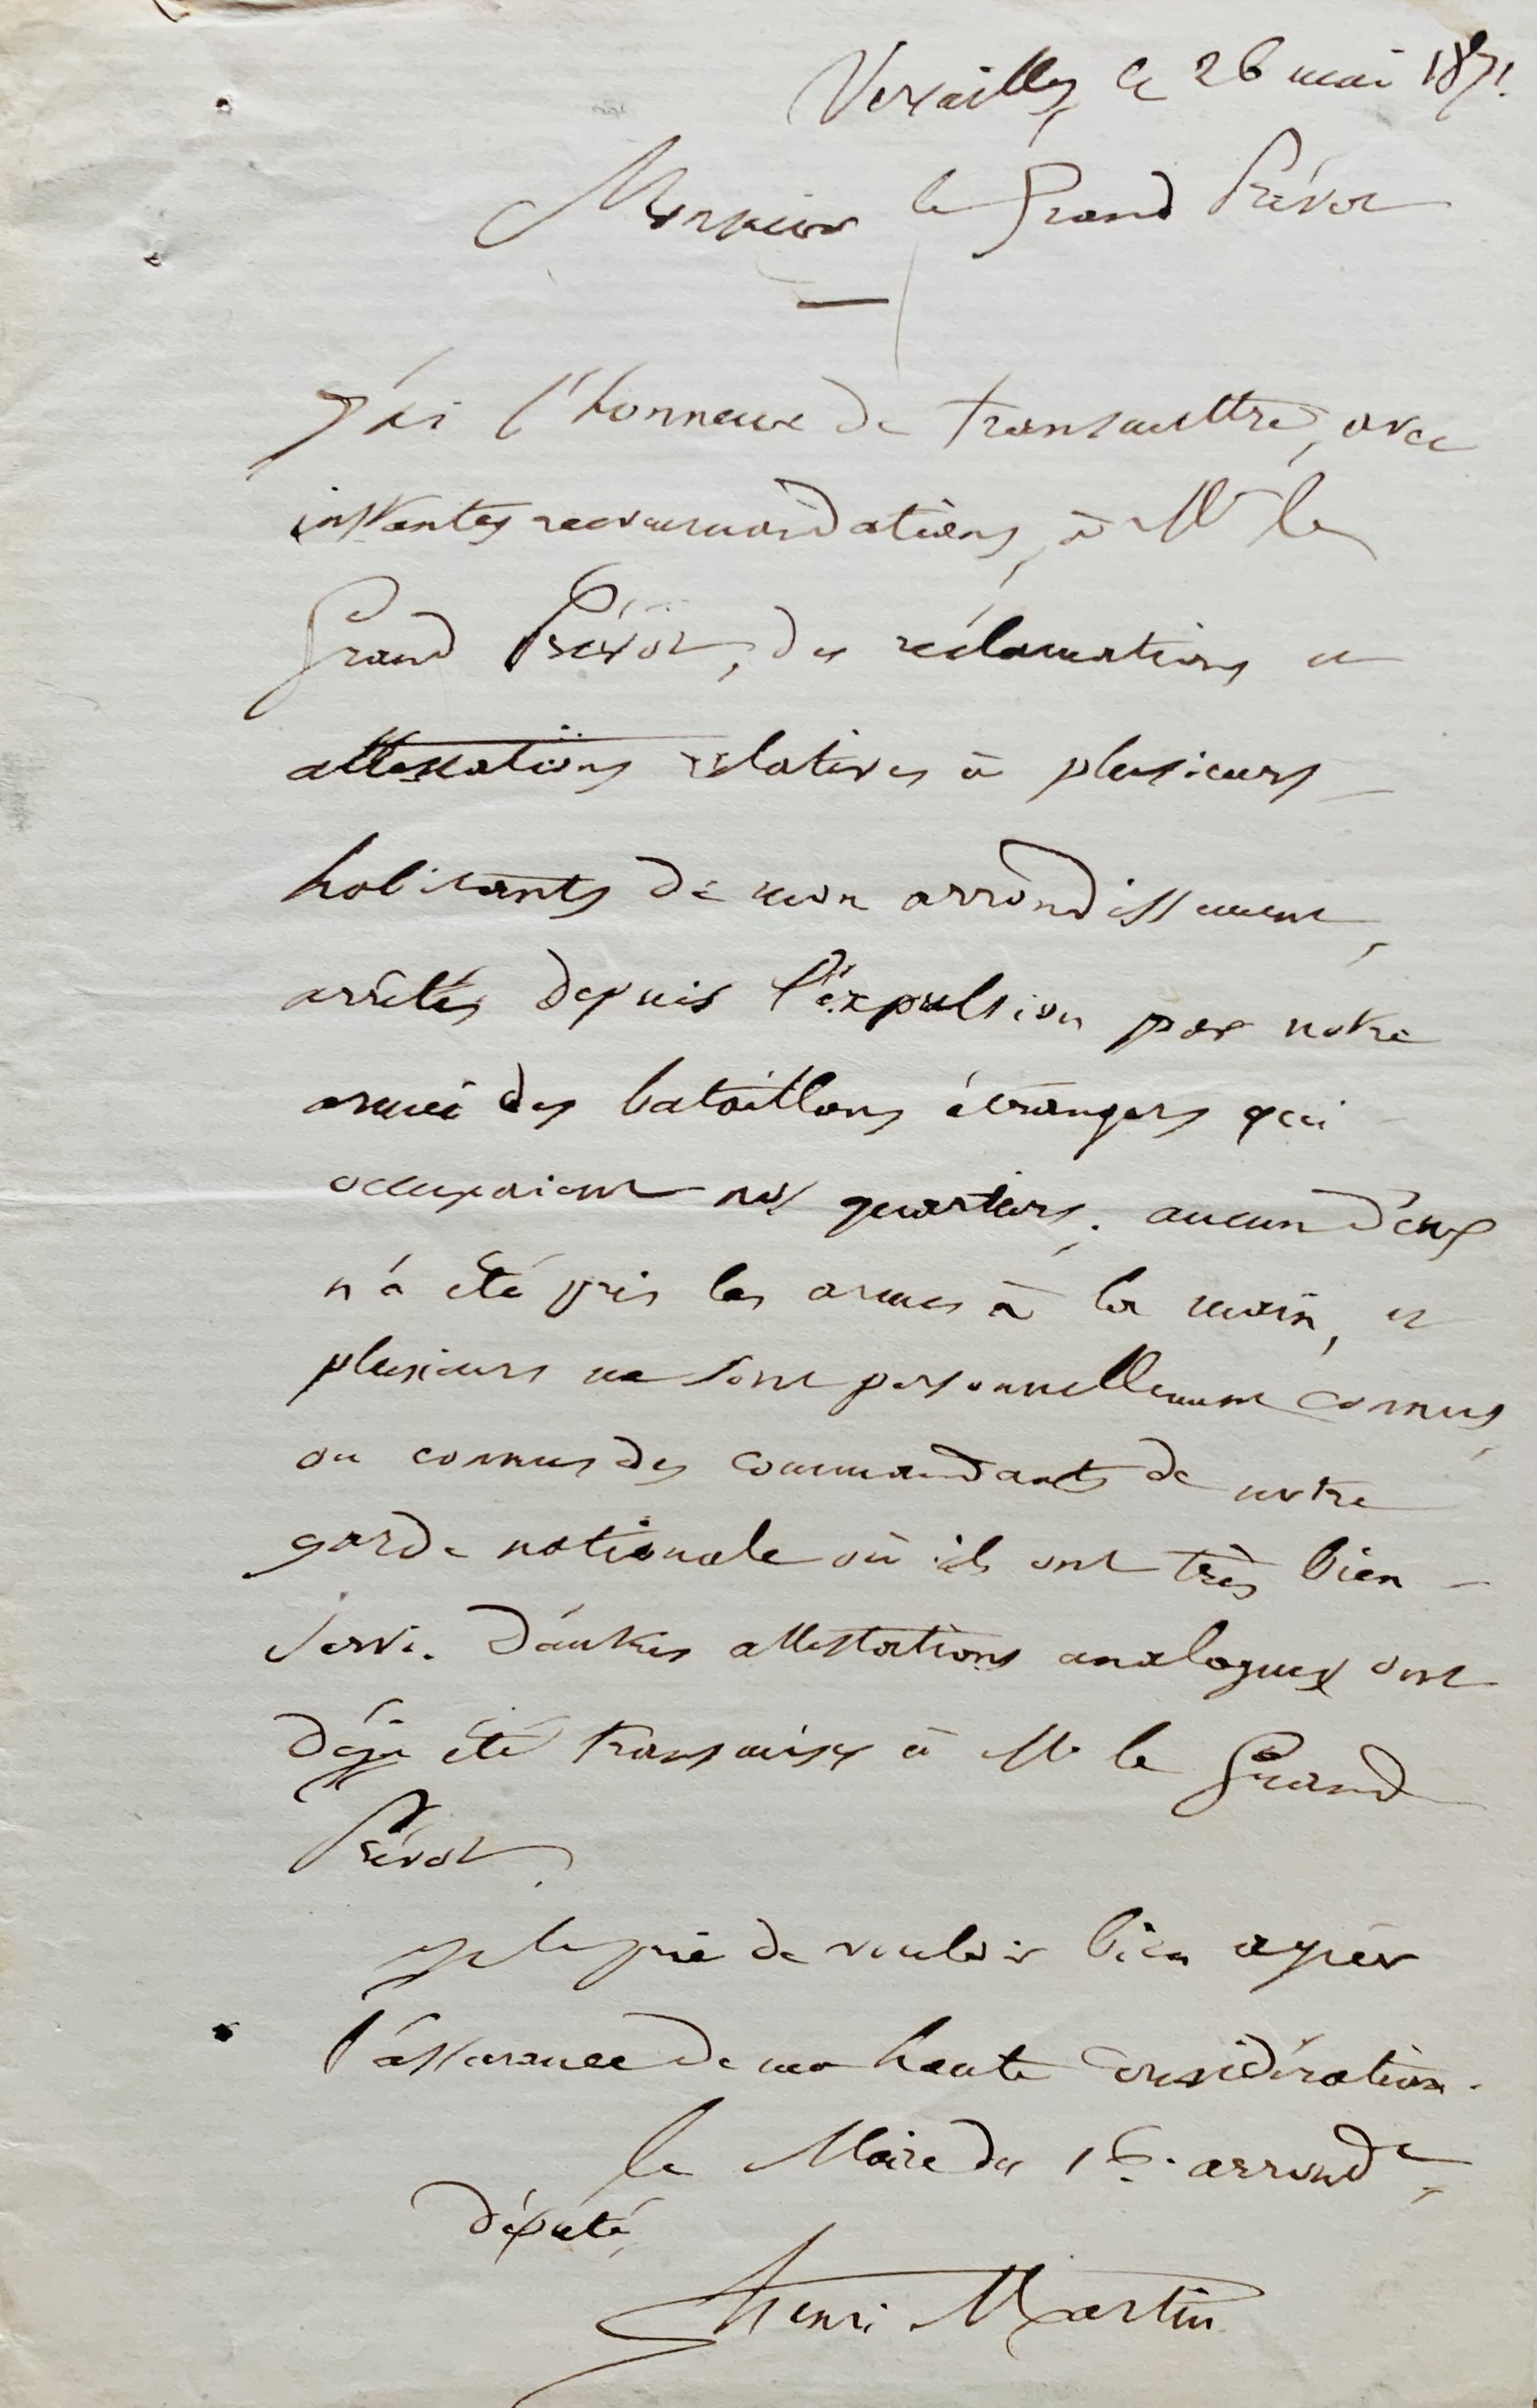 Versailles, le 26 mai 1871.
Monsieur le Grand Prévot
J'ai l'honneur de transmettre, avec
instantes recommandations, à Mr le
Grand Prévot, des réclamations et
attestations relatives à plusieurs
habitants de mon arrondissement,
arrêtés depuis l'expulsion par notre
armée des bataillons étrangers qui
occupaient nos quartiers. aucun d'eux
n'a été pris les armes à la main, et
plusieurs me sont personnellement connus,
ou connus des commandants de notre
garde nationale où ils ont très bien
servi. D'autres attestations analogues ont
déjà été transmises à Mr le Grand
Prévot.
Je le prie de vouloir bien agréer
l'assurance de ma haute considération.
le Maire du 16e arrondt,
député,
Henri Martin